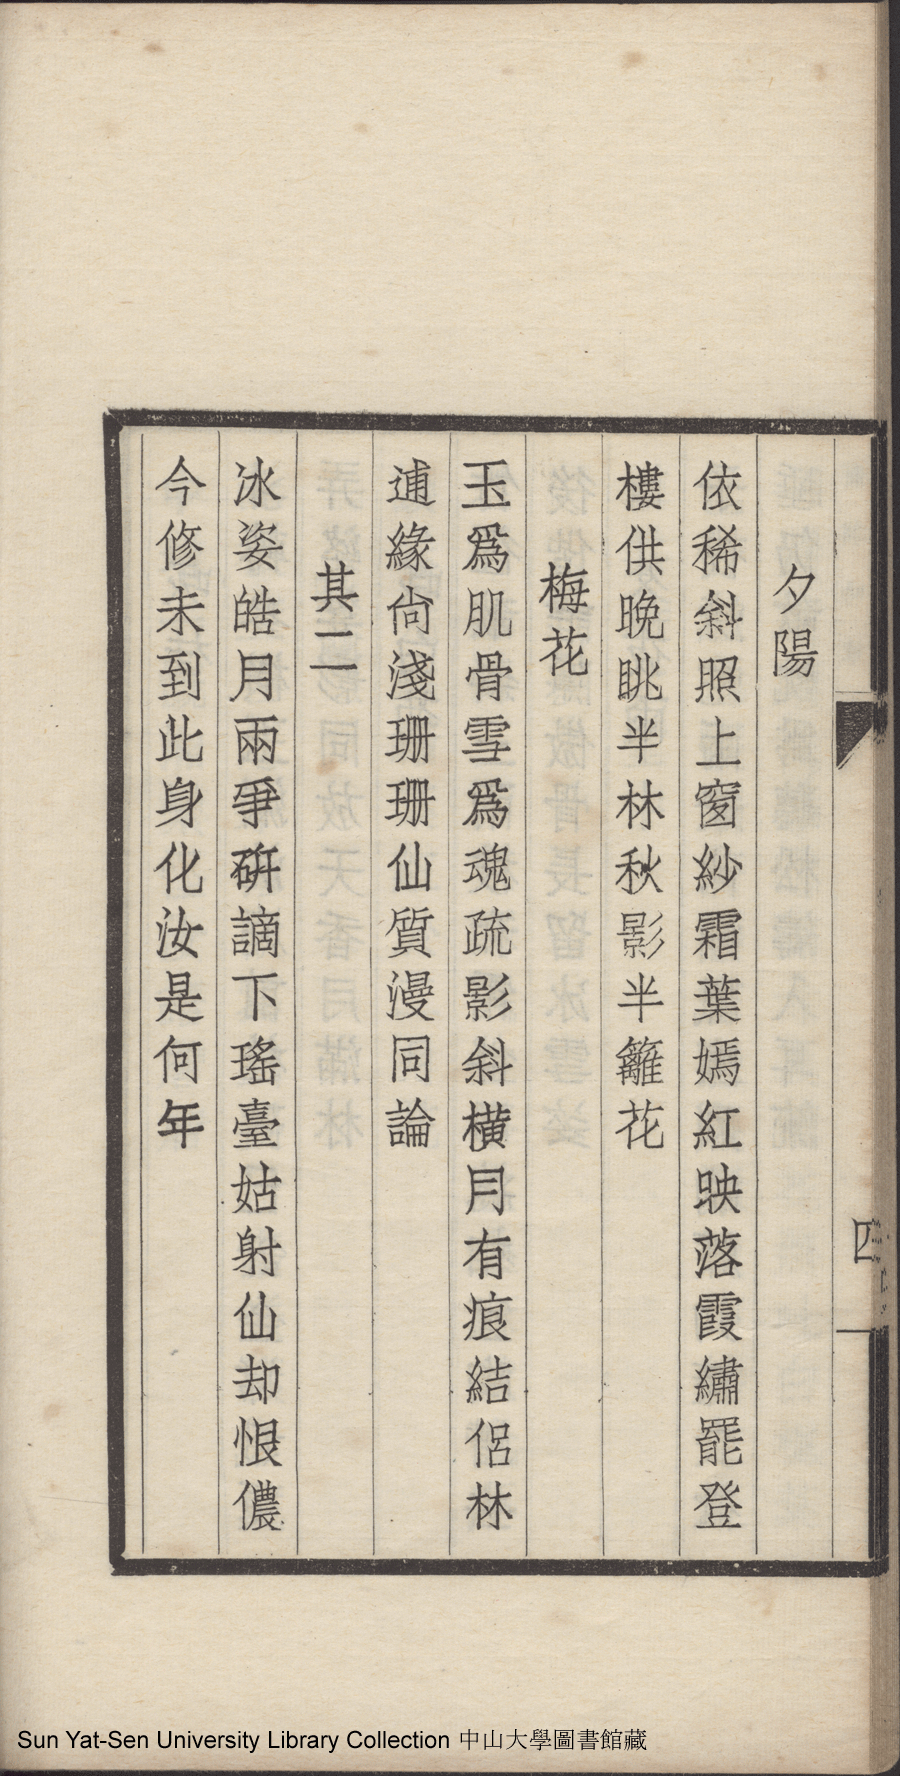 夕陽
依稀斜照上窗紗霜葉嫣紅映落霞繡罷登
樓供晚眺半林秋影半籬花
梅花
玉爲肌骨雪爲魂疏影斜橫月有痕結侶林
逋緣尙淺珊珊仙質漫同論
其二
冰姿皓月兩爭姸謫下瑤臺姑射仙却恨儂
今修未到此身化汝是何年
四
Sun Yat-Sen University Library Collection 中山大學圖書館藏